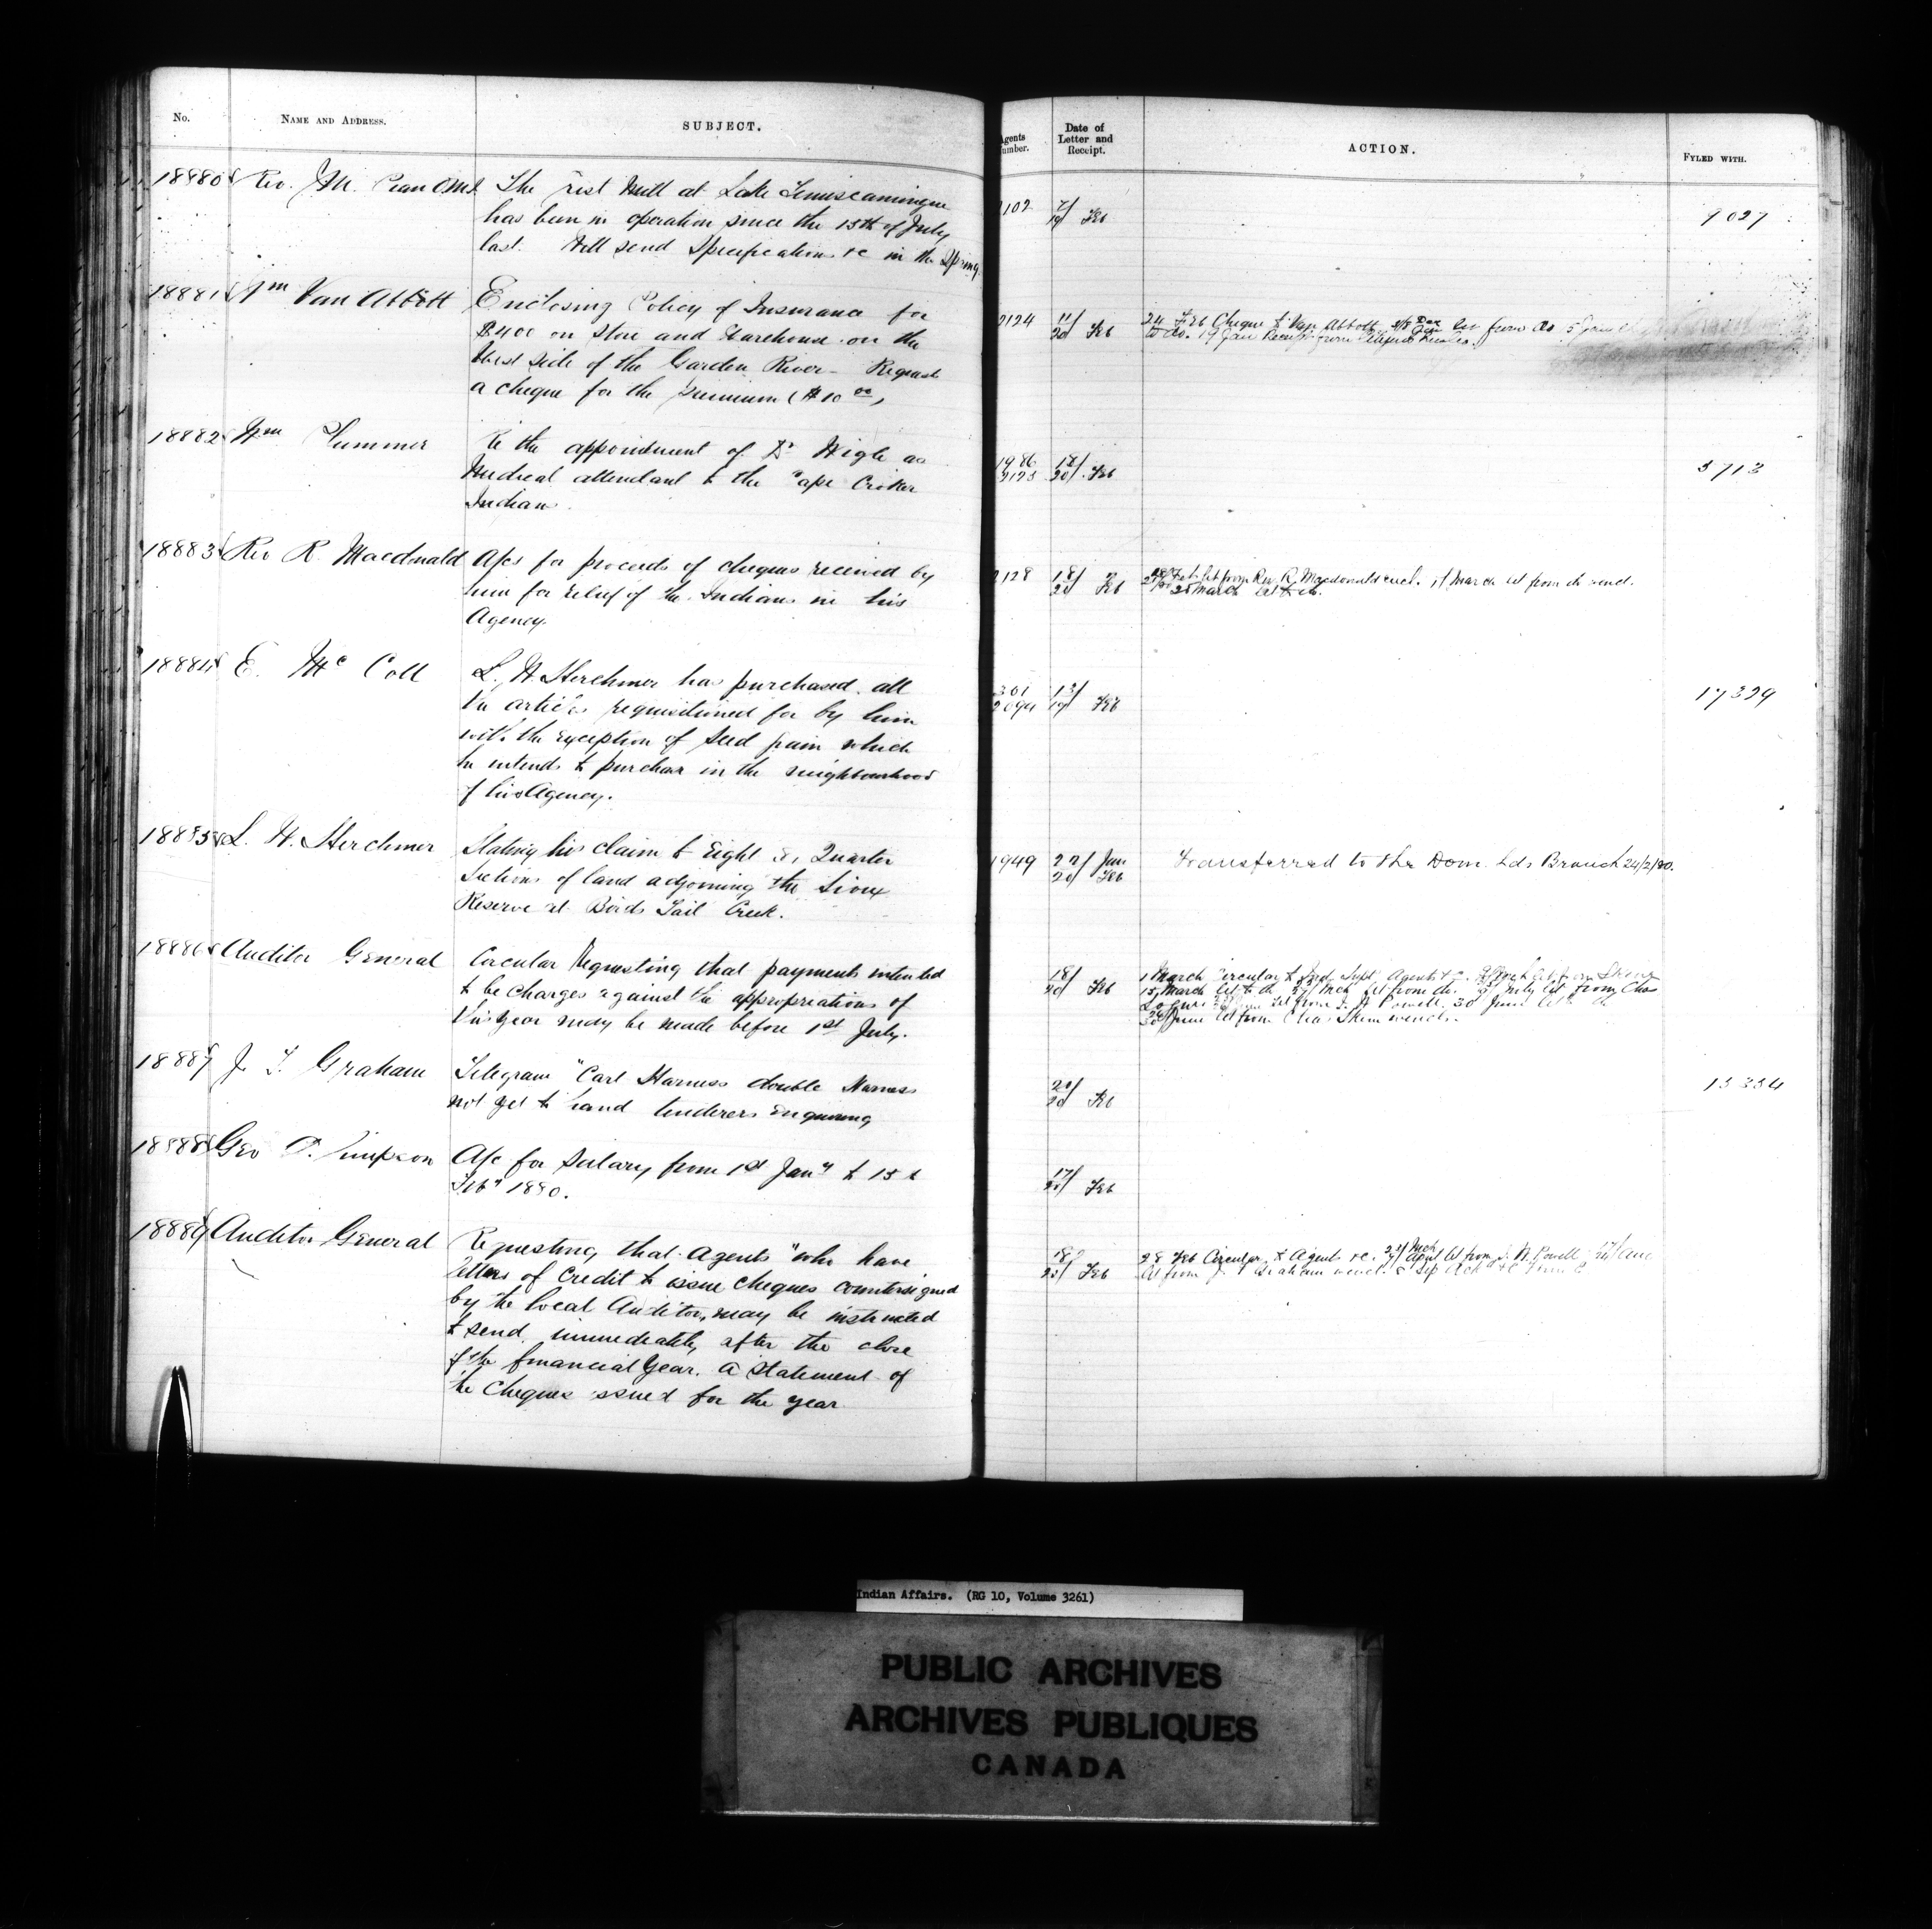 No.
NAME AND ADDRESS.
SUBJECT.
Agents Number.
Date of Letter and Receipt.
ACTION.
FYLED WITH.
18880 Rev. M. Pian OMI
The rist Mill at Lake Temiscamingue
has been in operation since the 15th of July
last. Will send Specifications &c in the Spring
2102
7/19 Feb
9027
18881 Wm Van Abbott
Enclosing Policy of Insurance for
$400 on Store and Storehouse on the
West side of the Garden River - Request
a cheque for the premium ($10 00)
2124
11/20 Feb
24 Feb Cheque to Van Abbott
to do. 19 Jan Receipt from
18882 Wm Plummer
Re the appointment of Dr Wigle as
Medical attendant to the Cape Croker
Indians.
1986
2125
18/20 Feb
3713
18883 Rev R. Macdonald
A/cs for proceeds of cheques received by
him for relief of the Indians in his
Agency.
2128
18/20 Feb
Feb let from Rev. R. Macdonald encl. 11 March let from do encl.
25 March let to do.
18884 E. McColl
L. W. Herchmer has purchased all
the articles requisitioned for by him
with the exception of seed grain which
he intends to purchase in the neighbourhood
of his Agency.
301
2094
13/19 Feb
17329
18885 L. W. Herchmer
Stating his claim to Eight & Quarter
Sections of land adjoining the Sioux
Reserve at Birds Tail Creek.
1949
22/20 Jan Feb
Transferred to the Dom Lds Branch 24/2/80.
18886 Auditor General
Circular Requesting that payments intended
to be charges against the appropriations of
this year may be made before 1st July.
18/20 Feb
1 March Circular to Ind. Supt Agents &c.
15 March let to do let from do. July let from Chas
let from I. W. Powell, 30 June let
30 June let from Chas Skene w encl.
18887 J. F. Graham
Telegram "Cart Harness double Harness
not yet to hand tenderers enquiring
20/20 Feb
13334
18888 Geo P. Simpson
A/c for Salary from 1st Jany to 15th
Feby 1880.
17/20 Feb
18889 Auditor General
Requesting that Agents "who have
letters of Credit to issue cheques countersigned
by the local Auditor, may be instructed
to send immediately after the close
of the financial Year, a Statement of
the Cheques issued for the year
18/20 Feb
28 Feb Circular to Agents &c. April let from I. W. Powell
let from J. F. Graham w encl.
Indian Affairs. (RG 10, Volume 3261)
PUBLIC ARCHIVES
ARCHIVES PUBLIQUES
CANADA